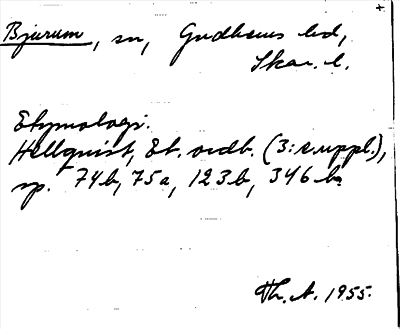 Bjurum, sn, Gudhems hd,
Skar. l.
Etymologi.
Hellquist, Et. ordb. (3: suppl.),
sp. 74b, 75a, 123b, 346b.
Th. A. 1955.